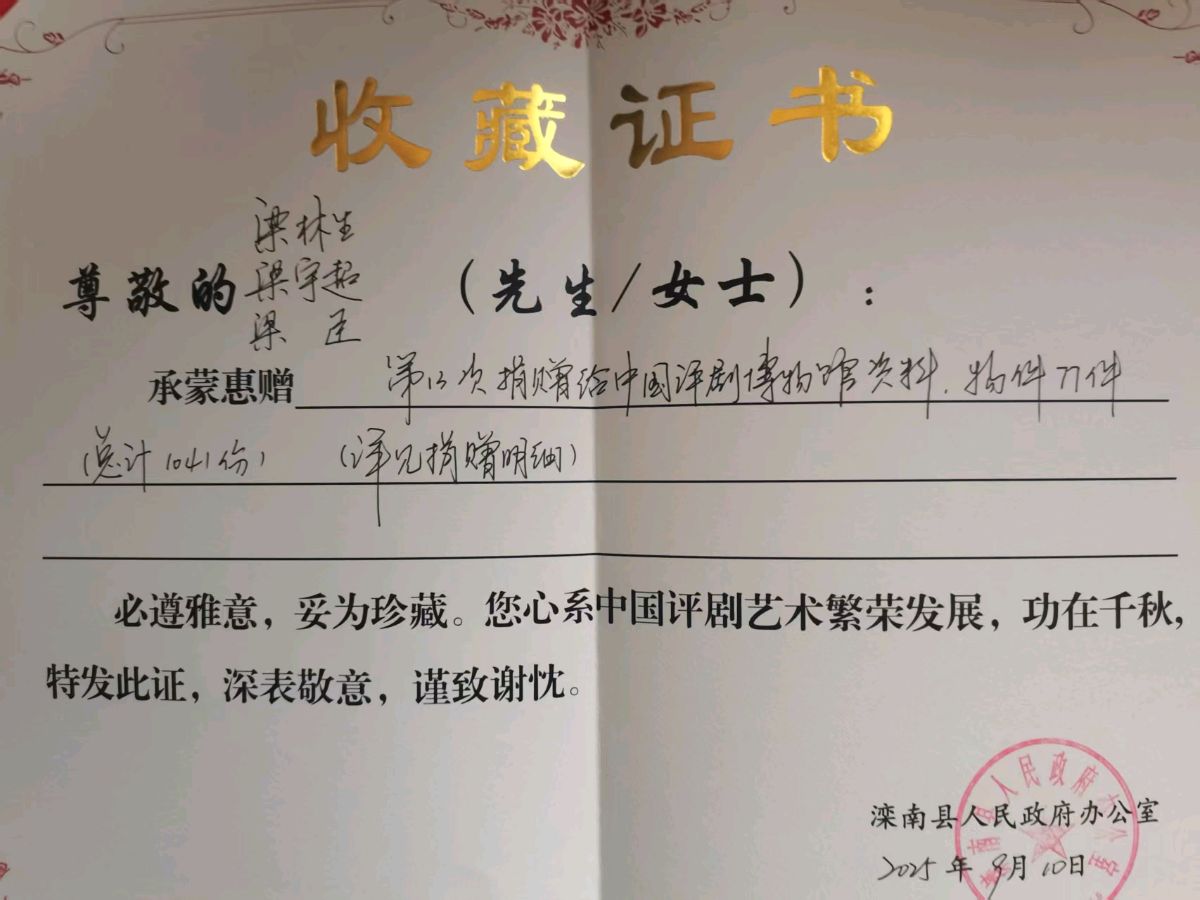 收藏证书
梁林生
尊敬的梁宇超（先生/女士）：
梁 匡
承蒙惠赠 第13次捐赠给中国评剧博物馆资料、物件77件
（总计1041份） （详见捐赠明细）
必遵雅意，妥为珍藏。您心系中国评剧艺术繁荣发展，功在千秋，
特发此证，深表敬意，谨致谢忱。
滦南县人民政府办公室
2025年9月10日